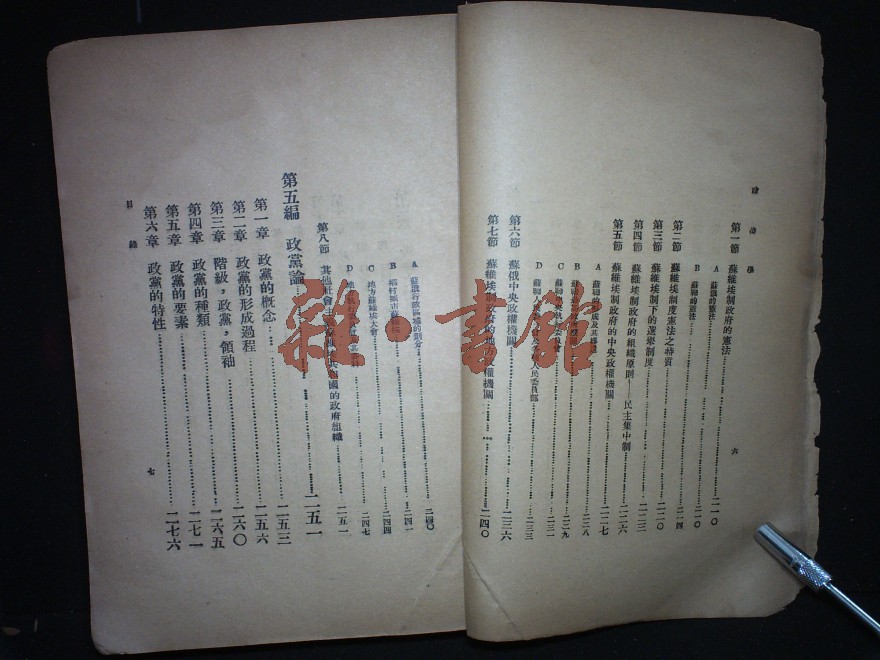 政治學
第一節 蘇維埃制政府的憲法……二一〇
A 蘇俄的憲法……二一〇
B 蘇聯的憲法……二一〇
第二節 蘇維埃制度憲法之特質……二一四
第三節 蘇維埃制下的選舉制度……二二〇
第四節 蘇維埃制政府的組織原則——民主集中制……二二六
第五節 蘇維埃制政府的中央政權機關……二二七
A 蘇聯的
B
C
D 蘇聯人民 人民委員部……二三三
第六節 蘇俄中央政權機關……二三六
第七節 蘇維埃制政府的地 政權機關……二四〇
六
A 蘇俄行政區域的劃分……二四〇
B 鄉村 城市蘇維埃……二四一
C 地方蘇維埃大會……二四四
D……二四七
第八節 其他社會主 國的政府組織……二五一
第五編 政黨論……二五一
第一章 政黨的概念……二五三
第二章 政黨的形成過程……二五六
第三章 階級，政黨，領袖……二六〇
第四章 政黨的種類……二六五
第五章 政黨的要素……二七一
第六章 政黨的特性……二七六
目錄
七
雜·書館